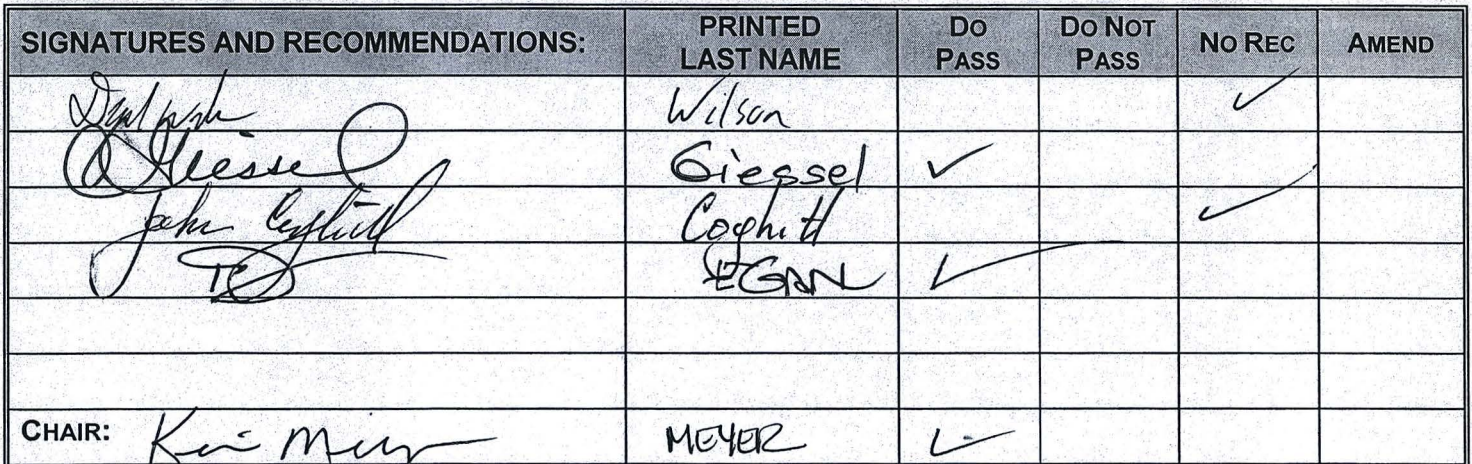 SIGNATURES AND RECOMMENDATIONS: PRINTED LAST NAME DO PASS DO NOT PASS NO REC AMEND
Wilson ✓
Giessel Giessel ✓
John Coghill Coghill ✓
EGAN ✓
CHAIR: Kevin Meyer MEYER ✓